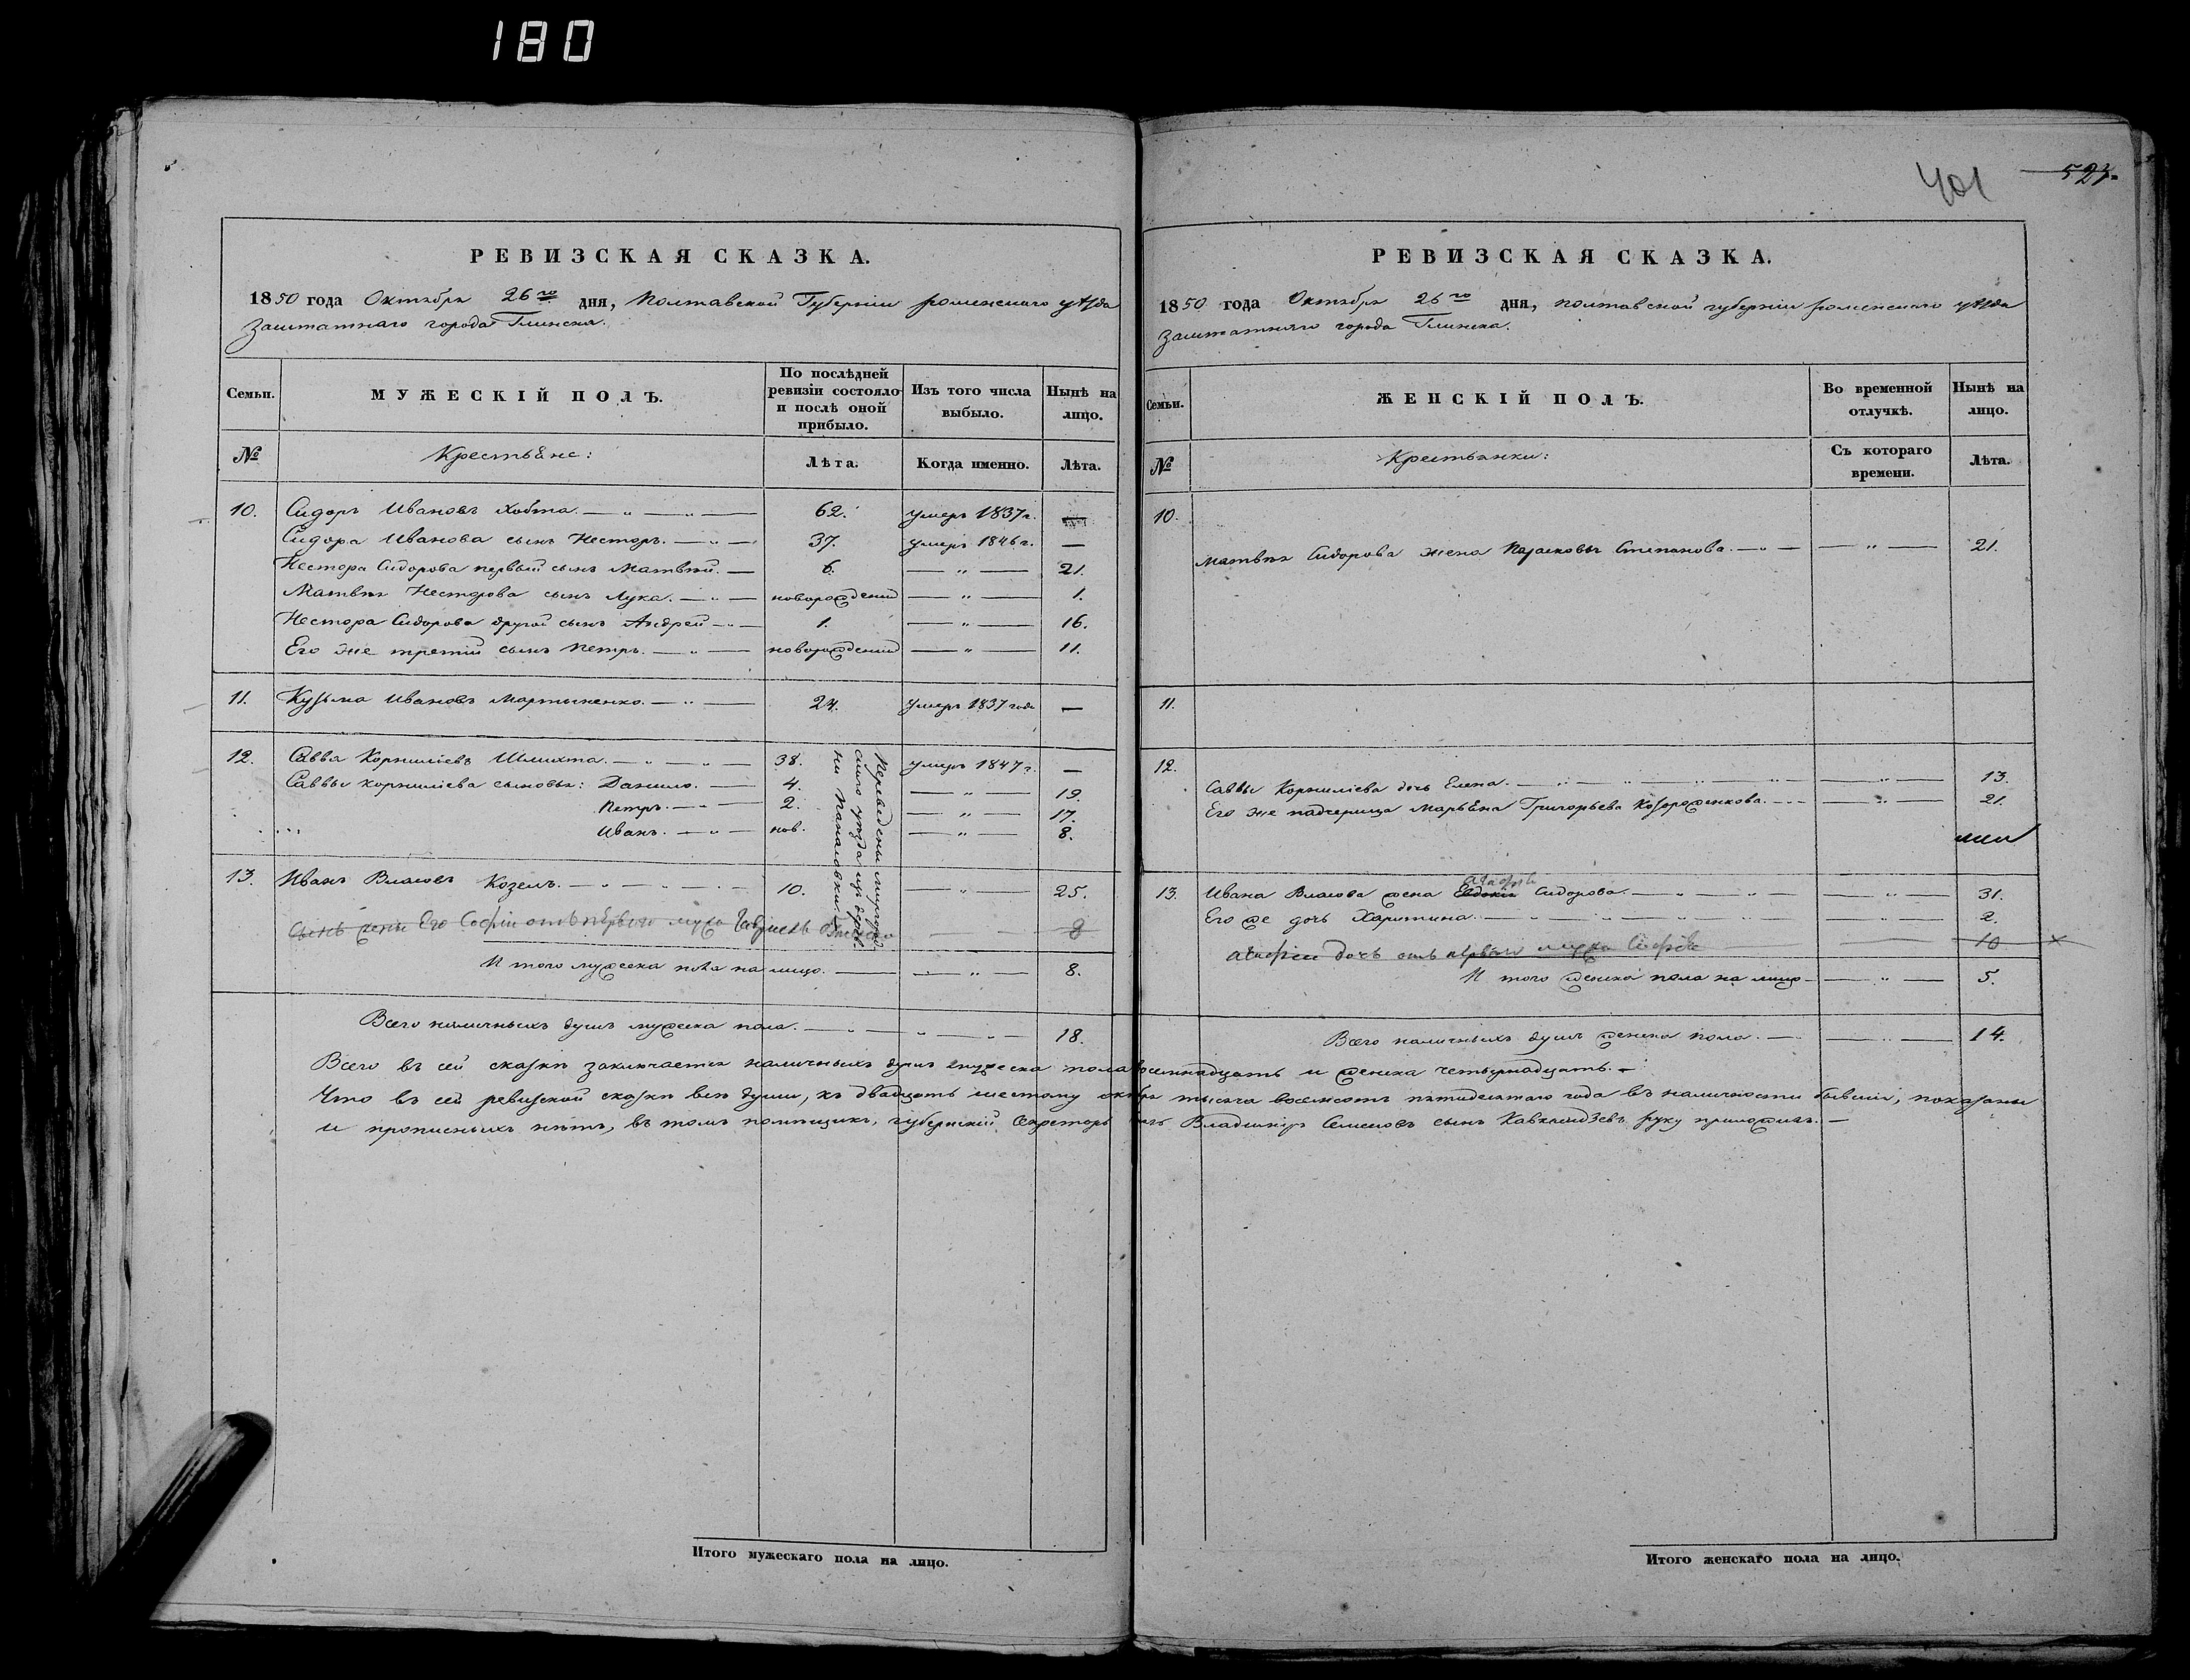 180
401
523.
РЕВИЗСКАЯ СКАЗКА.
1850 года Октября 26го дня, Полтавской Губерніи роменскаго уѣзда
Заштатнаго города Глинска.
Семьи. МУЖЕСКІЙ ПОЛЪ. По послѣдней ревизіи состояло и послѣ оной прибыло. Изъ того числа выбыло. Нынѣ на лицо.
№ Крестьяне: Лѣта. Когда именно. Лѣта.
10. Сидоръ Ивановъ Хобта. 62. умеръ 1837 г. —
Сидора Иванова сынъ Несторъ. 37. умеръ 1846 г. —
Нестора Сидорова первый сынъ Матвѣй. 6. — „ — 21.
Матвѣя Нестерова сынъ Лука. новорожденый — „ — 1.
Нестора Сидорова другой сынъ Андрей 1. — „ — 16.
Его же третій сынъ Петръ. новорожденый — „ — 11.
11. Кузьма Ивановъ Мартыненко. 24. умеръ 1837 года —
12. Савва Корниліевъ Шлихта. 38. умеръ 1847 г. —
Саввы Корниліева сыновья: Данило. 4. — „ — 19.
Петръ. 2. — „ — 17.
Иванъ. нов. — „ — 8.
Переведены миргород
скаго уѣзда изъ дерев
ни Панасовки.
13. Иванъ Власовъ Козелъ. 10. — „ — 25.
сынъ жены Его Софіи отъ первого мужа 8
И того мужеска пола на лицо. — „ — 8.
Всего наличныхъ душъ мужеска пола. 18.
РЕВИЗСКАЯ СКАЗКА.
1850 года Октября 26го дня, полтавской губерніи роменскаго уѣзда
Заштатнаго города Глинска.
Семьи. ЖЕНСКІЙ ПОЛЪ. Во временной отлучкѣ. Нынѣ на лицо.
№ Крестьянки: Съ котораго времени. Лѣта.
10.
Матвѣя Сидорова жена Парасковья Степанова. — „ — 21.
11.
12.
Саввы Корниліева дочь Елена. — „ — 13.
Его же падчерица Марьяна Григорьева — „ — 21.
13. Ивана Власова жена Евдокія Сидорова. — „ — 31.
Его же дочь Харитина. — „ — 2.
дочь отъ первого мужа 10 ×
И того женска пола на лицо — „ — 5.
Всего наличныхъ душъ женска пола. — „ — 14.
Всего въ сей сказкѣ заключается наличныхъ душъ мужеска пола восемнадцать и женска четырнадцать. —
Что въ сей ревизской сказкѣ всѣ души, къ двадцать шестому октября тысяча восемсотъ пятидесятаго года въ наличности бывшіи, показаны
и прописныхъ нѣтъ, въ томъ помѣщикъ, губернскій Секретарь Владиміръ Семеновъ сынъ руку приложилъ. —
Итого мужескаго пола на лицо.
Итого женскаго пола на лицо.